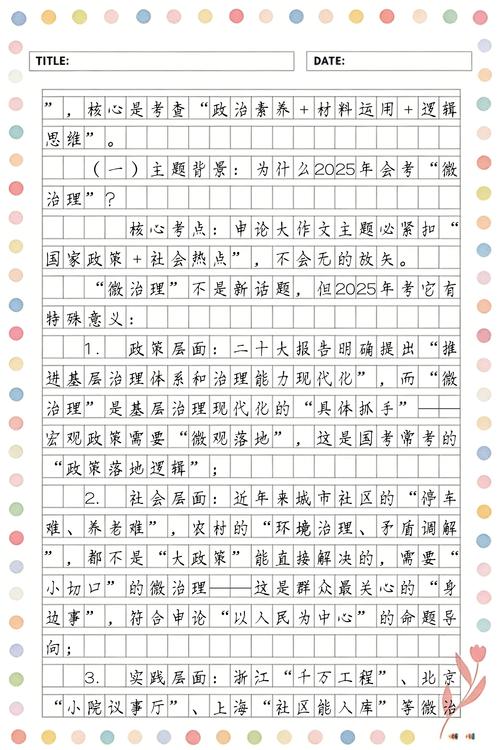 TITLE: DATE:
”，核心是考查“政治素养+材料运用+逻辑
思维”。
（一）主题背景：为什么2025年会考“微
治理”？
核心考点：申论大作文主题必紧扣“
国家政策+社会热点”，不会无的放矢。
“微治理”不是新话题，但2025年考它有
特殊意义：
1. 政策层面：二十大报告明确提出“推
进基层治理体系和治理能力现代化”，而“微
治理”是基层治理现代化的“具体抓手”——
宏观政策需要“微观落地”，这是国考常考的
“政策落地逻辑”；
2. 社会层面：近年来城市社区的“停车
难、养老难”，农村的“环境治理、矛盾调解
”，都不是“大政策”能直接解决的，需要“
小切口”的微治理——这是群众最关心的“身
边事”，符合申论“以人民为中心”的命题导
向；
3. 实践层面：浙江“千万工程”、北京
“小院议事厅”、上海“社区能人库”等微治